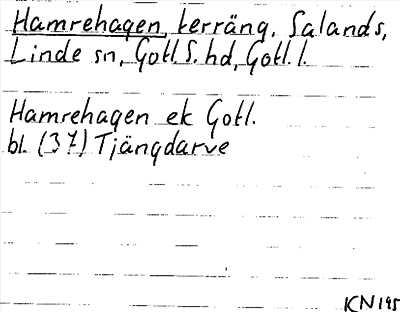 Hamrehagen, terräng. Salands,
Linde sn, Gotl. S. hd, Gotl. l.
Hamrehagen ek Gotl.
bl. (37) Tjängdarve